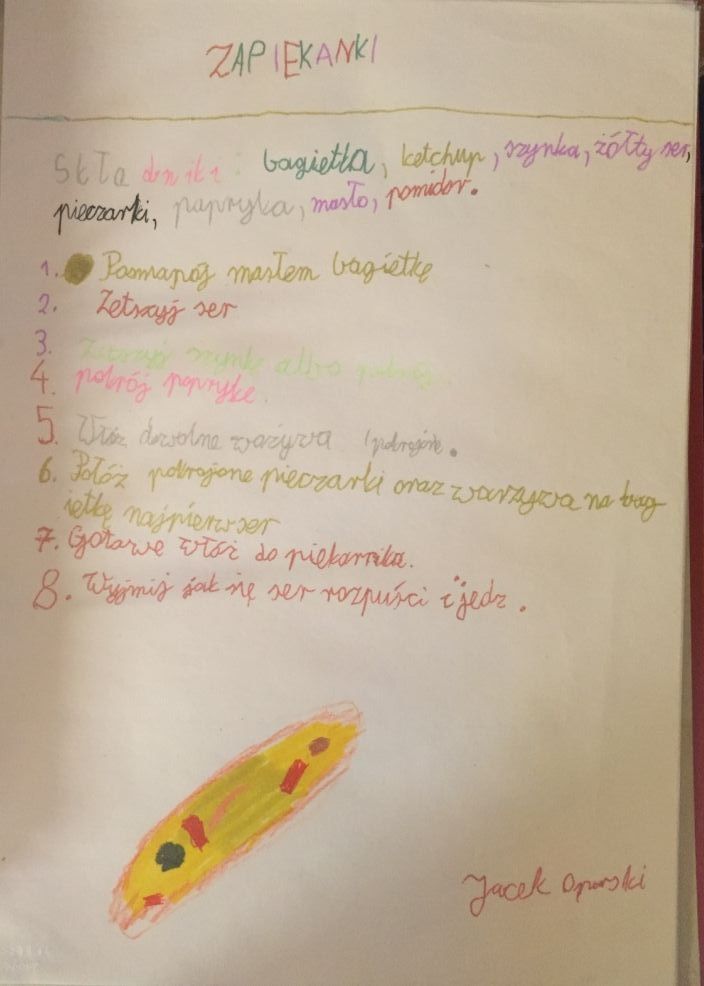 ZAPIEKANKI
Składniki: bagietka, ketchup, szynka, żółty ser,
pieczarki, papryka, masło, pomidor.
1. Posmaruj masłem bagietkę
2. Zetszyj ser
3. Zetszyj szynkę albo pokrój
4. pokrój paprykę.
5. Włóż dowolneważywa (pokrojone.
6. Połóż pokrojone pieczarki oraz warzywa na bag
ietkę najpierw ser
7. Gotowe włóż do piekarnika.
8. Wyjmij jak się ser rozpuści i jedz.
Jacek